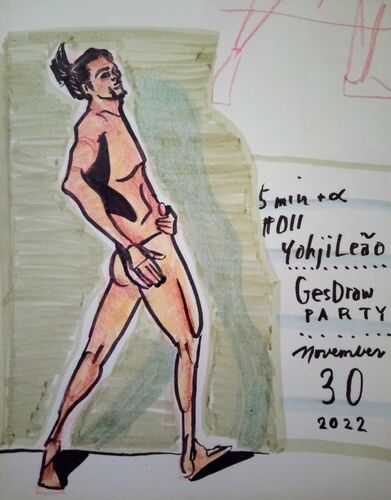 5 min +α
#011
YohjiLeão
GesDraw
PARTY
November
30
2022